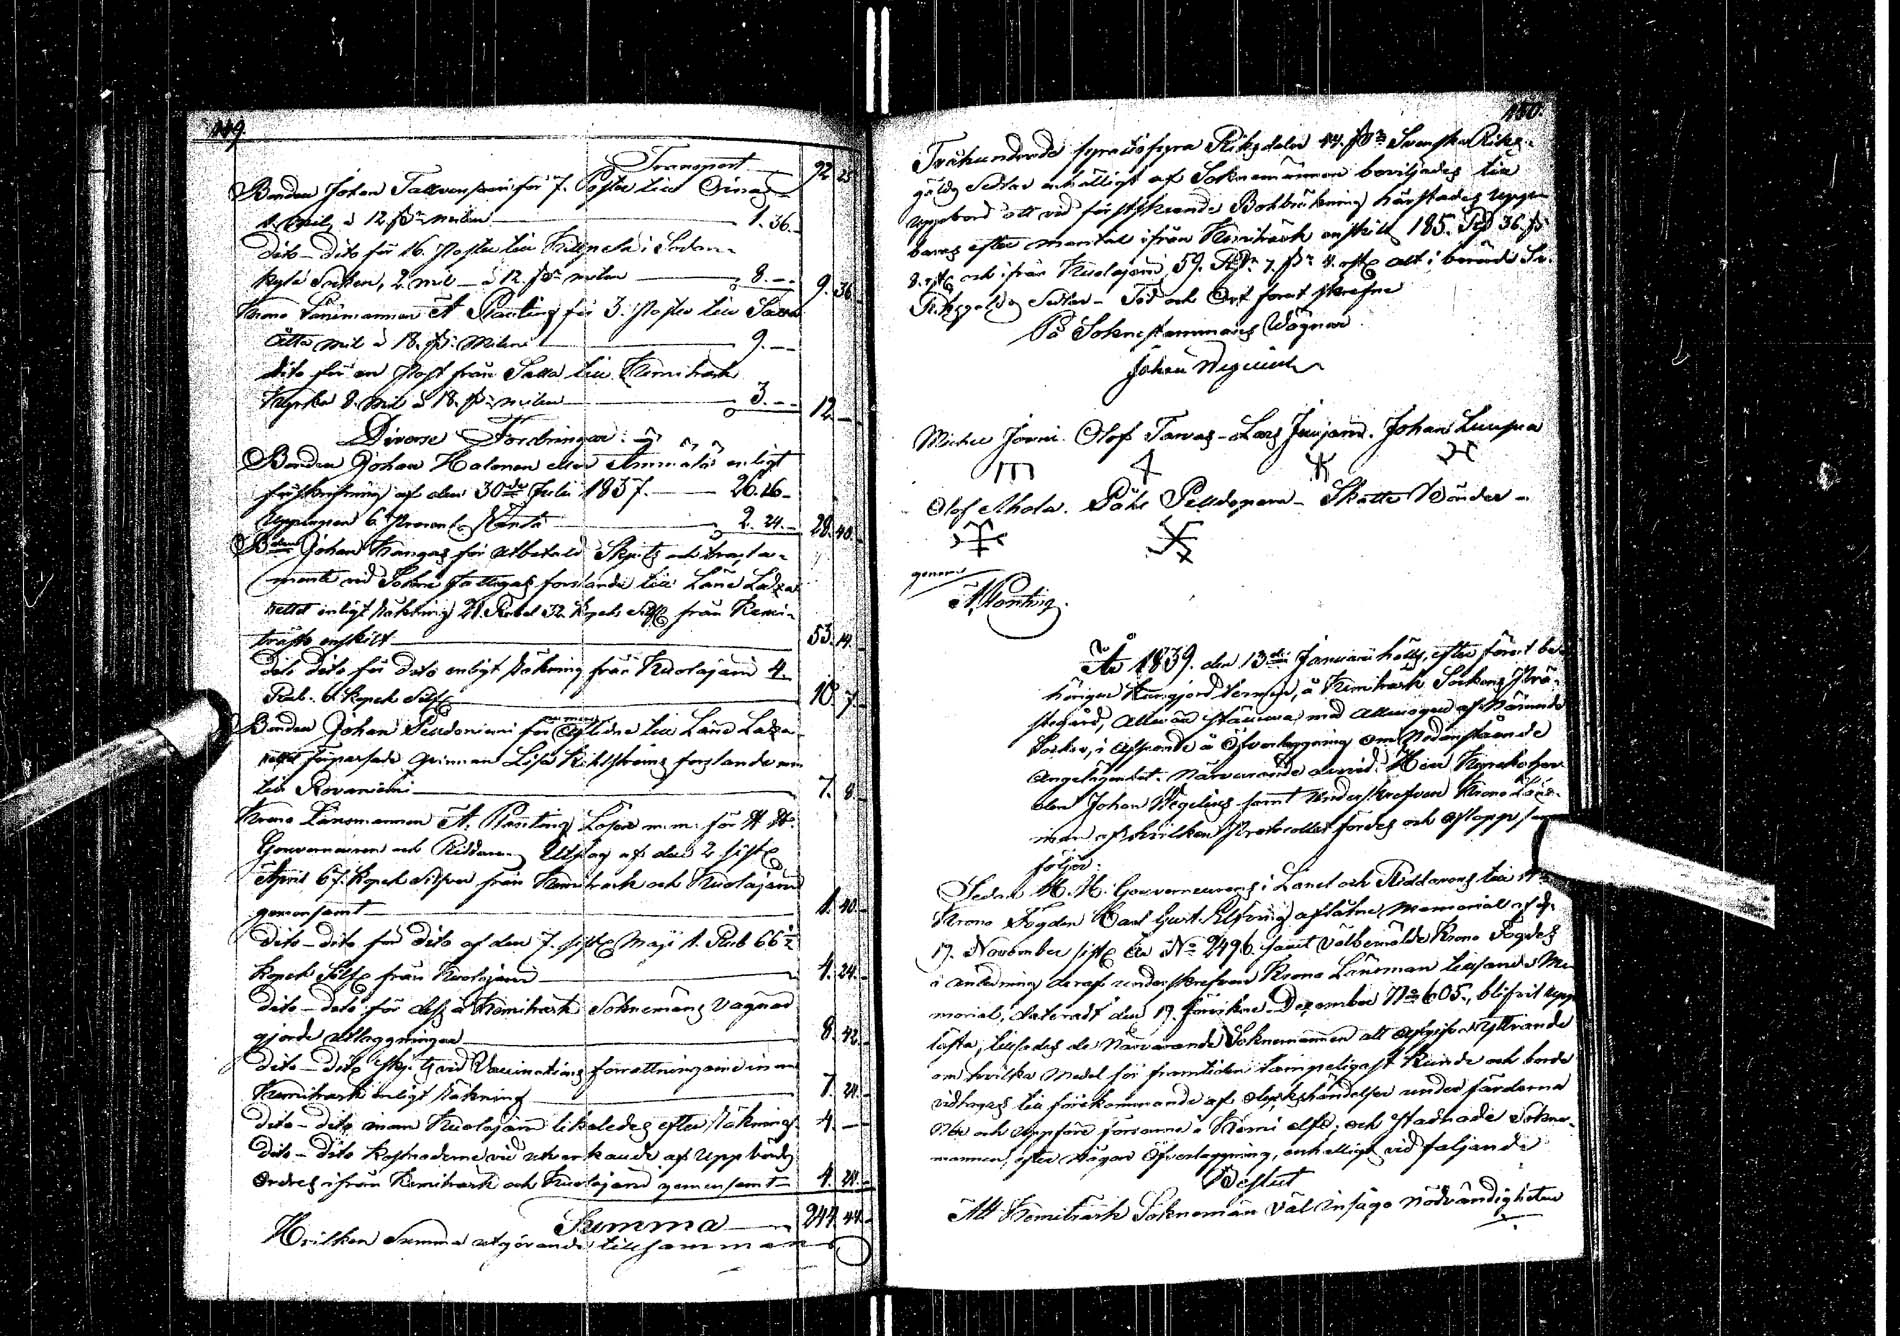 449.
Transport 92 25
Bonden Johan Tallvensaari för 7. Poster till
1 mil, à 12 ß milen 1. 36.
dito dito för 16. Poster till i Sodan-
kylä Socken, 2 mil à 12 ß milen 8. -- 9. 36.
Krono Länsmannen A Planting för 3. Poster till Salla
åtta mil à 18. ß. Milen 9. --
dito för en Post från Salla till Kemiträsk
Kyrka 8. mil à 18. ß milen 3. -- 12 --
Diverse Fordringar:
Bonden Johan Halonen eller Ämmälä enligt
förskrifning af den 30de Julii 1837. 26. 16
Upplupen 6 Procents Ränta 2. 24. 28. 40.
Bonden Johan Kangas för utbetald Skjuts och
mente vid Sockne forslande till Läne Laza-
rettet enligt Räkning 21 Rubel 32. Kopek Silfver från Kemi-
träsk enskilt 53. 14.
dito dito för dito enligt Räkning från Kuolajärvi 4
Rub. 6 kopek Silfver 10. 7.
Bonden Johan Pelldoniemi för till Läne Laza-
rettet förpassade qvinnan Lisa Kihlströms forslande
till Rovaniemi 7. 8.
Krono Länsmannen A. Planting Lösen m.m. för H. H.
Gouverneuren och Riddarens Utslag af den 2 sistl.
April 67. Kopek Silfver från Kemiträsk och Kuolajärvi
gemensamt 1. 40.
dito dito för dito af den 7. sistl. Maji 1. Rub 66 1/2
Kopek Silfver från Kuolajärvi 4. 24.
dito dito för dess å Kemiträsk Soknemäns vägnar
gjorde utläggningar 8. 42.
dito dito skjuts vid Vaccinations förrättningarne inom
Kemiträsk enligt Räkning 7. 24.
dito dito inom Kuolajärvi likaledes efter Räkning 4. --
dito dito kostnaderne vid utverkande af Uppbörds
Ordres ifrån Kemiträsk och Kuolajärvi gemensamt 4. 24.
Summa 244 44.
Hvilken Summa utgörande tillsammans
450.
Tvåhundrade fyratiofyra Riksdaler 44. ß Svenska Riks-
gälds Sedlar enhälligt af Soknemännen beviljades till
uppbord att vid förstskeende Bokbräkning härstädes uppe-
bäras efter mantal ifrån Kemiträsk enskilt 185. Rd 36. ß
8. rst. och ifrån Kuolajärvi 59. Rd. 7. ß. 4. rst. allt i
Riksgälds Sedlar - Tid och Ort förut skrefne
På Soknestämmans Vägnar
Johan Wegelius
Michel Jovni. Olof Tarvas. Lars Jumjärvi. Johan Luspa
Olof Ahola. Påhl Pelldopera - Skatte Bönder -
genom
A. Planting.
År 1839. den 13de Januarii hölls, efter förut be-
hörigen kungjord termin, å Kemiträsk Sockens Prä-
stegård, Allmän stämma med Allmogen af Nämnde
Socken, i afseende å Öfverläggning om Nedanstående
Angelägenhet. Närvarande voro Herr Kyrkoher-
den Johan Wegelius samt Underskrefven Krono Läns-
man af hvilken Protocollet fördes och aflopp som
följer:
Sedan H. H. Gouverneurens i Länet och Riddarens till
Krono Fogden Carl Gust. aflåtne Memorial af d.
19. November sistl. År No 2496. samt Välbemälde Krono Fogdes
i anledning deraf underskrefven Krono Länsman tillsände Me-
morial, dateradt den 19. December No 605., blifvit upp-
läste, tillsades de Närvarande Soknemännen att afgifva yttrande
om hvilka Medel för framtiden lämpeligast kunde och borde
vidtagas till förekommande af olyckshändelser under färderna
Ner och Uppföre forsarne i Kemi elf, och stadnade Sokne-
männen, efter någon Öfverläggning, enhälligt vid följande
Beslut
Att Kemiträsk Soknemän väl insågo Nödvändigheten